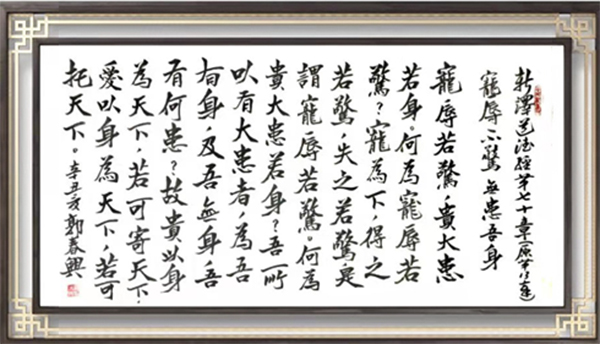 新譯道德經第七十章
寵辱不驚 無患吾身
寵辱若驚,貴大患
若身。何為寵辱若
驚?寵為下,得之
若驚,失之若驚,是
謂寵辱若驚。何為
貴大患若身?吾所
以有大患者,為吾
有身,及吾無身,吾
有何患?故貴以身
為天下,若可寄天下,
愛以身為天下,若可
托天下。辛丑亥郭春興